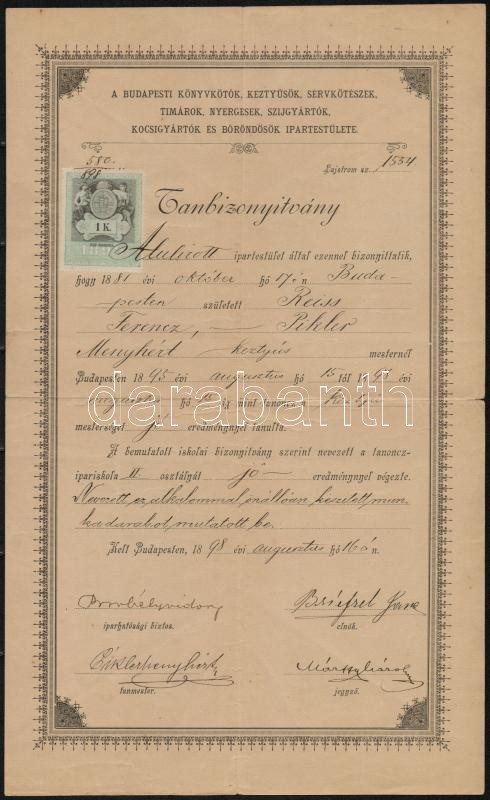 A BUDAPESTI KÖNYVKÖTŐK, KEZTYŰSÖK, SÉRVKÖTÉSZEK,
TIMÁROK, NYERGESEK, SZIJGYÁRTÓK,
KOCSIGYÁRTÓK ÉS BŐRÖNDÖSÖK IPARTESTÜLETE.
580
898
Lajstrom sz. 1534
1 K.
Tanbizonyitvány
Alulirott ipartestület által ezennel bizonyittatik,
hogy 1881 évi október hó 17én Buda-
pesten született Reiss
Ferencz, Pikler
Menyhért keztyüs mesternél
Budapesten 1895 évi augusztus hó 15 től 1898 évi
augusztus hó ig mint tanoncz a
mesterséget jó eredménynyel tanulta.
A bemutatott iskolai bizonyitvány szerint nevezett a tanoncz-
ipariskola III osztályát jó eredménynyel végezte.
Nevezett ez alkalommal önállóan készített mun-
kadarabot mutatott be.
Kelt Budapesten, 1898 évi augusztus hó 16 án.
iparhatósági biztos.
elnök.
Pikler Menyhért
tanmester.
jegyző.
darabanth
www.darabanth.com